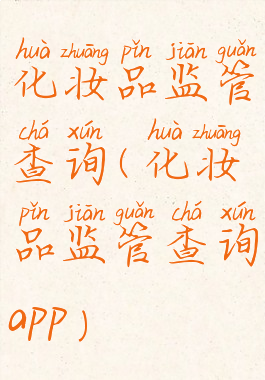 huà zhuāng pǐn jiān guǎn
化妆品监管
chá xún huà zhuāng
查询(化妆
pǐn jiān guǎn chá xún
品监管查询
app)